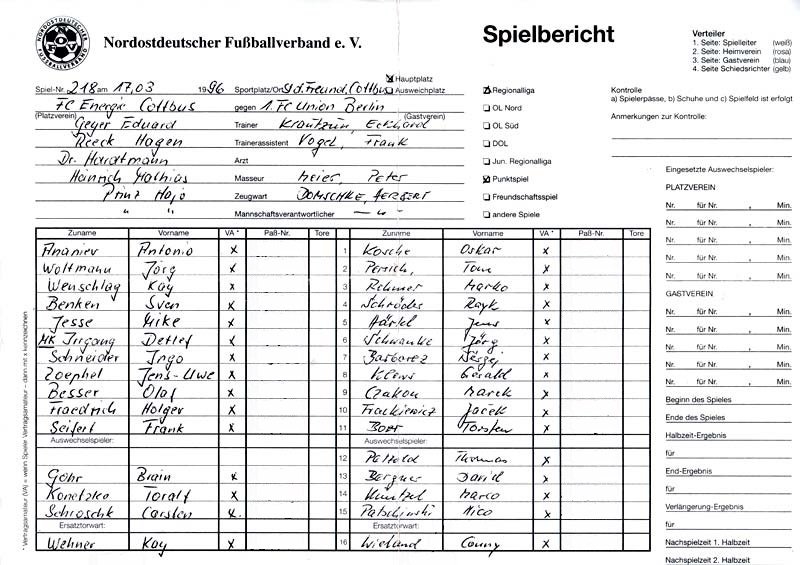 NORDOSTDEUTSCHER FUSSBALLVERBAND
NOFV
Nordostdeutscher Fußballverband e. V.
Spielbericht
Verteiler
1. Seite: Spielleiter (weiß)
2. Seite: Heimverein (rosa)
3. Seite: Gastverein (blau)
4. Seite Schiedsrichter (gelb)
Hauptplatz
Spiel-Nr. 218 am 17.03 1996 Sportplatz/Ort Std.Freund.Cottbus Ausweichplatz
FC Energie Cottbus gegen 1. FC Union Berlin
(Platzverein) (Gastverein)
Geyer Eduard Trainer Krautzun, Eckhard
Reeck Hagen Trainerassistent Vogel, Frank
Dr. Hardtmann Arzt
Heinrich Mathias Masseur Meier, Peter
Prinz Hajo Zeugwart DOMSCHKE, HERBERT
" " Mannschaftsverantwortlicher — " —
Regionalliga
OL Nord
OL Süd
DOL
Jun. Regionalliga
Punktspiel
Freundschaftsspiel
andere Spiele
Kontrolle
a) Spielerpässe, b) Schuhe und c) Spielfeld ist erfolgt
Anmerkungen zur Kontrolle:
Zuname Vorname VA * Paß-Nr. Tore Zuname Vorname VA * Paß-Nr. Tore
Ananiev Antonio x 1 Kosche Oskar x
Woltmann Jörg x 2 Persich, Tom x
Wenschlag Kay x 3 Rehmer Marko x
Benken Sven x 4 Schröder Rayk x
Jesse Mike x 5 Härtel Jens x
MK Irrgang Detlef x 6 Schwanke Jörg x
Schneider Ingo x 7 Barbarez Sergej x
Zoephel Jens-Uwe x 8 Klews Gerald x
Besser Olaf x 9 Czakon Marek x
Friedrich Holger x 10 Frackiewicz Jacek x
Seifert Frank x 11 Boer Torsten x
Auswechselspieler: Auswechselspieler:
12 Petzold Thomas x
Göhr Brain x 13 Bergner David x
Konetzko Toralf x 14 Küntzel Marco x
Schroschk Carsten x. 15 Patschinski Nico x
Ersatztorwart: Ersatztorwart:
Wehner Kay x 16 Wieland Conny x
* Vertragsamateur (VA) = wenn Spieler Vertragsamateur – dann mit x kennzeichnen
Eingesetzte Auswechselspieler:
PLATZVEREIN
Nr. für Nr. , Min.
Nr. für Nr. , Min.
Nr. für Nr. , Min.
Nr. für Nr. , Min.
GASTVEREIN
Nr. für Nr. , Min.
Nr. für Nr. , Min.
Nr. für Nr. , Min.
Nr. für Nr. , Min.
Nr. für Nr. , Min.
Beginn des Spieles
Ende des Spieles
Halbzeit-Ergebnis
für
End-Ergebnis
für
Verlängerung-Ergebnis
für
Nachspielzeit 1. Halbzeit
Nachspielzeit 2. Halbzeit